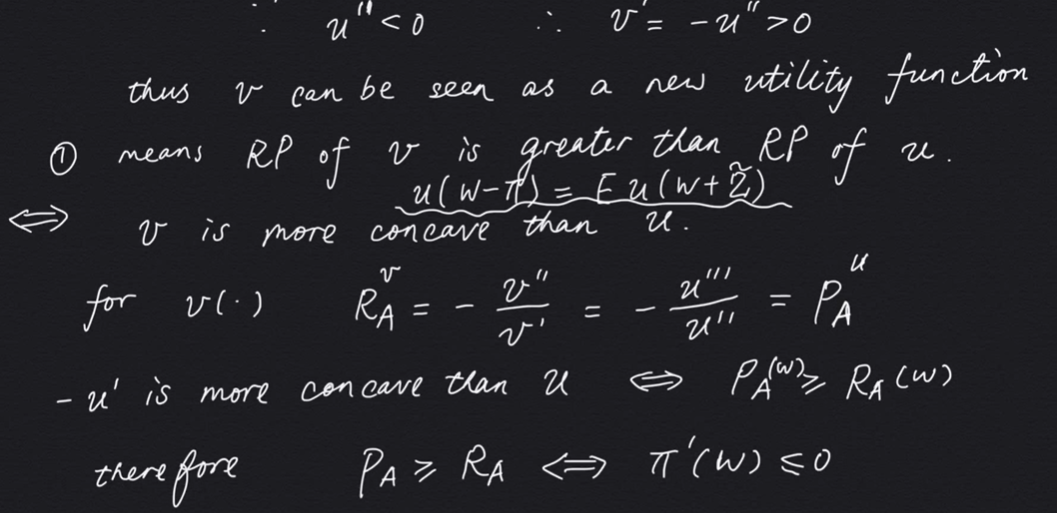 ∵ u'' < 0 ∴ v' = - u'' > 0
thus v can be seen as a new utility function
① means RP of v is greater than RP of u.
u(W-π) = E u(W+Z̃)
⇔ v is more concave than u.
for v(·) R_A^v = - v''/v' = - u'''/u'' = P_A^u
- u' is more concave than u ⇔ P_A(W) ≥ R_A(W)
therefore P_A ≥ R_A ⇔ π'(W) ≤ 0